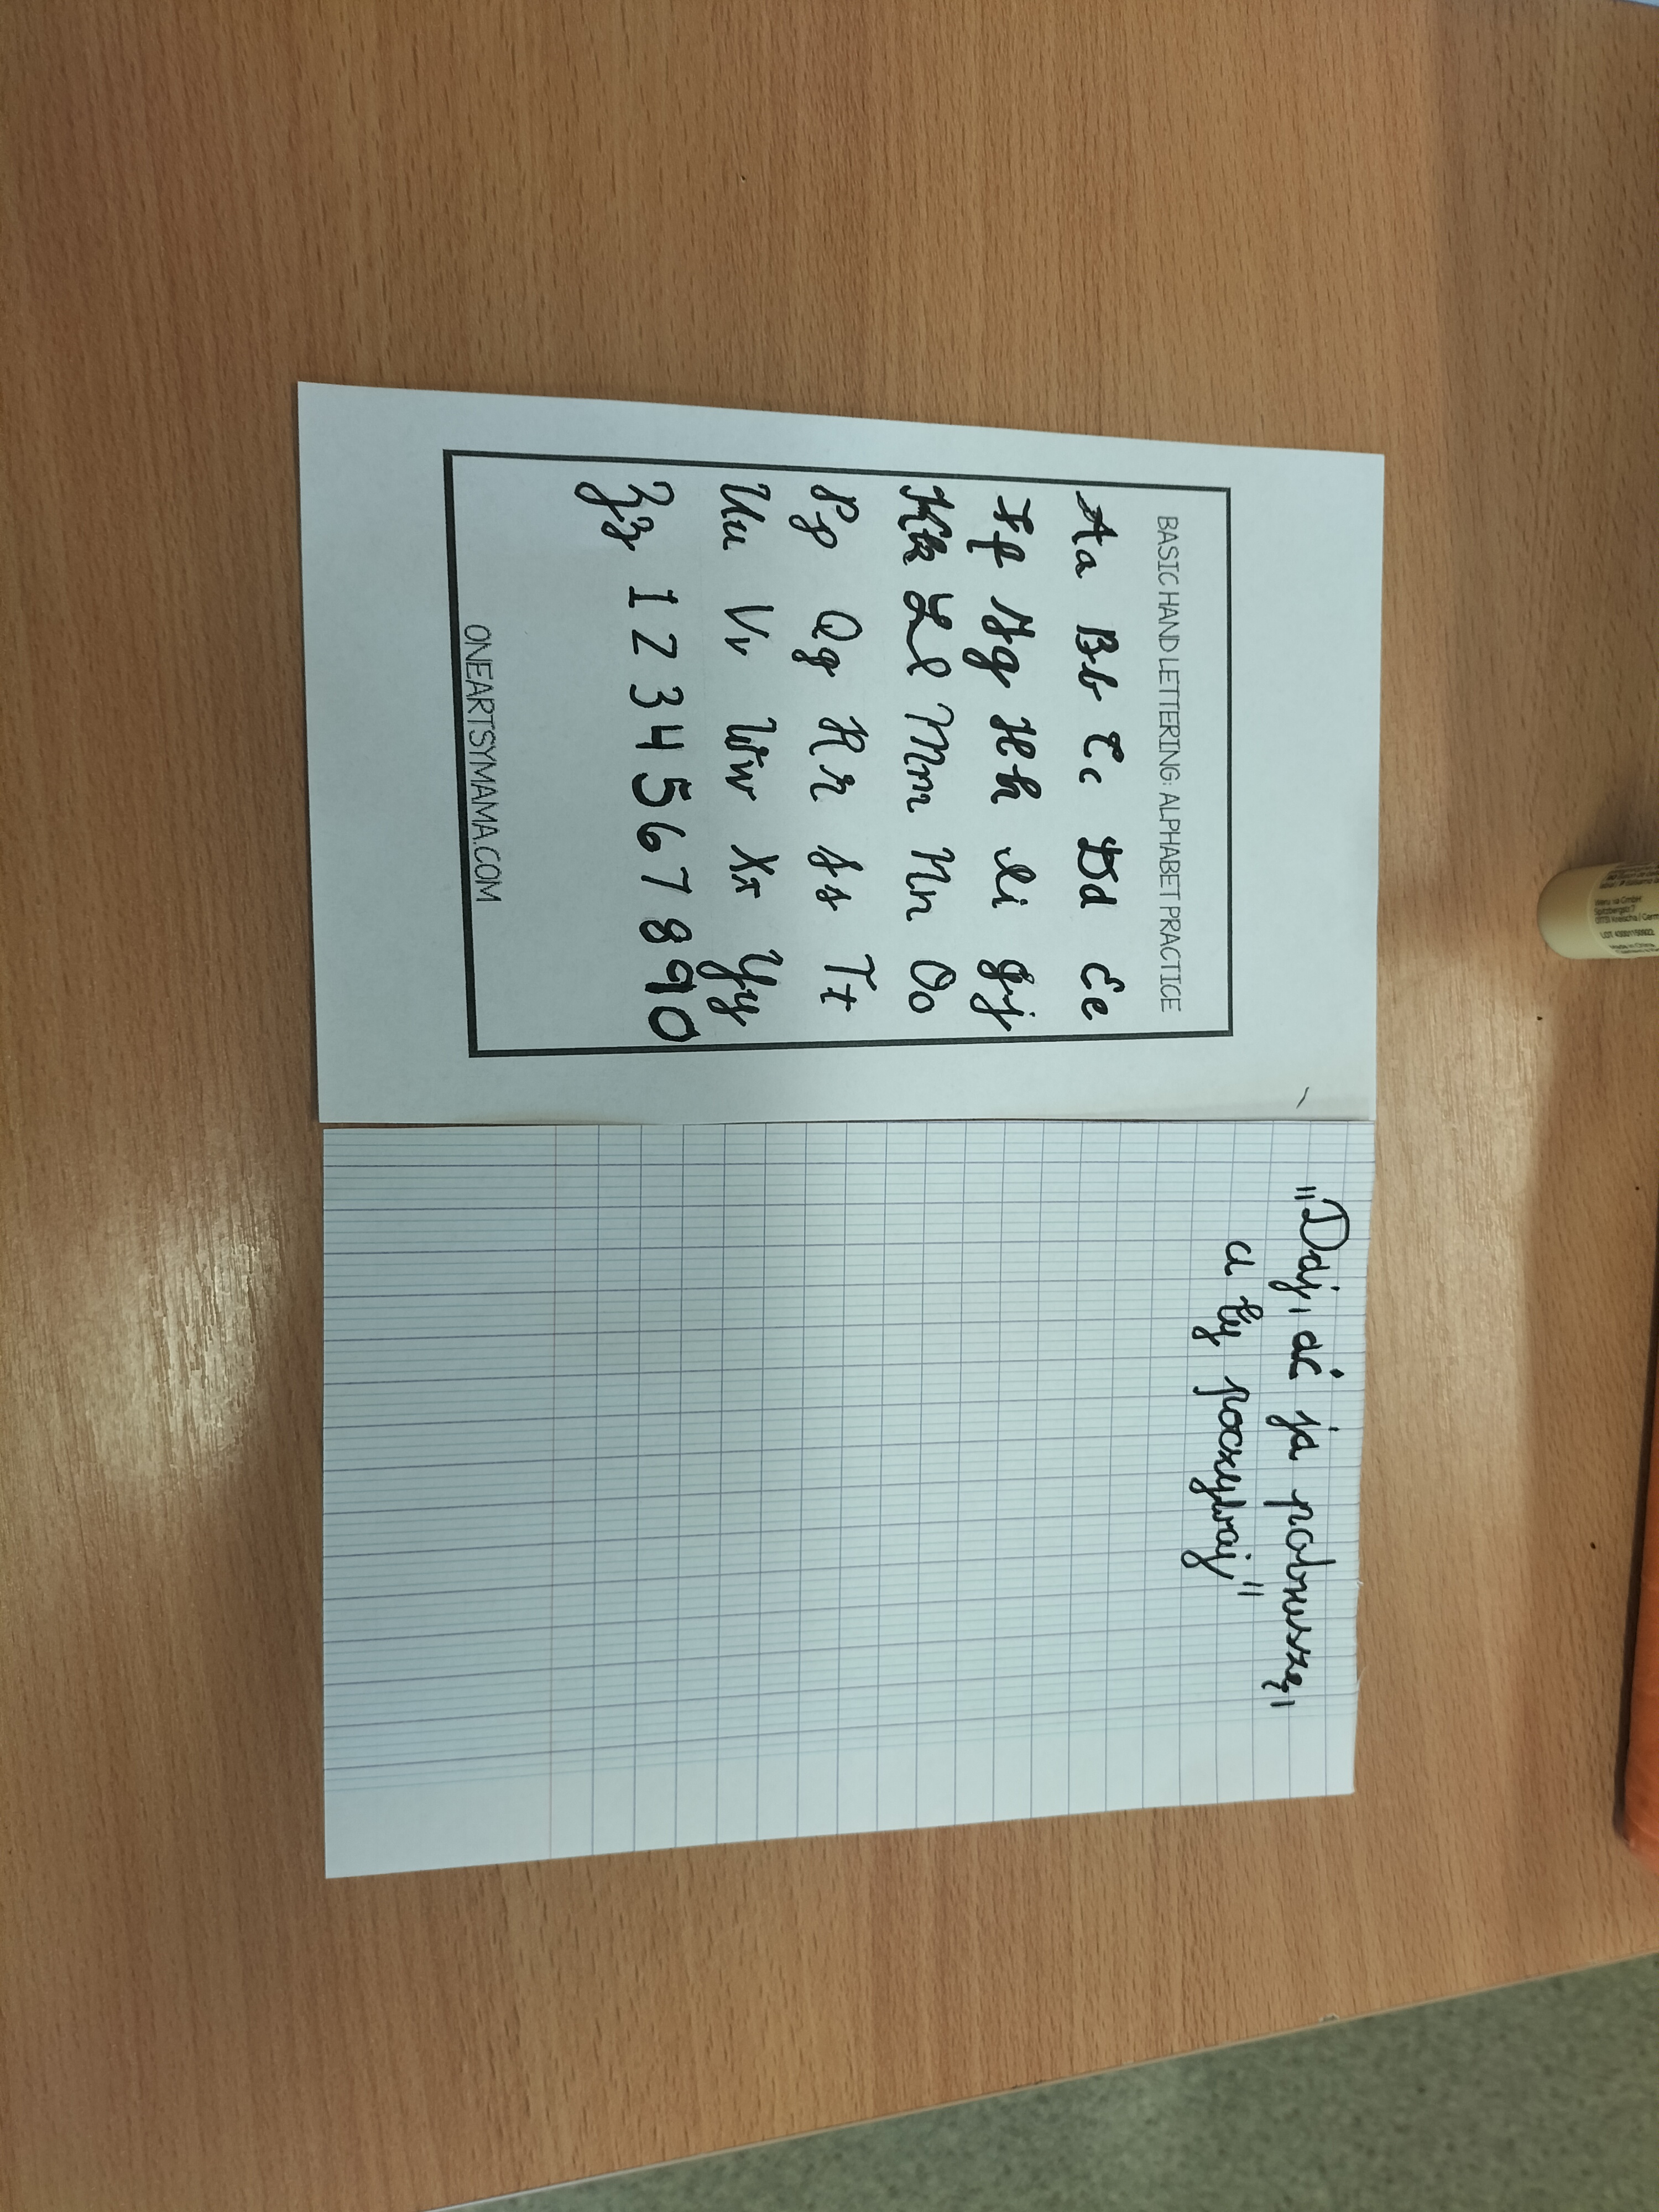 BASIC HAND LETTERING: ALPHABET PRACTICE
Aa Bb Cc Dd Ee
Ff Gg Hh Ii Jj
Kk Ll Mm Nn Oo
Pp Qq Rr Ss Tt
Uu Vv Ww Xx Yy
Zz 1 2 3 4 5 6 7 8 9 0
ONEARTSYMAMA.COM
"Daj, ać ja pobruszę,
a ty poczywaj"